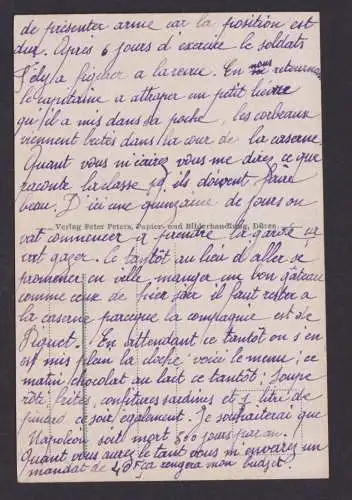 de présenter arme car la position est
dur. Après 6 jours d'exercice le soldats
Sely a figurer a la revue. En nous retournant
le capitaine a attraper un petit lièvre
qu'il a mis dans sa poche, les corbeaux
viennent bêtes dans la cour de la caserne.
Quant vous m'écirez vous me direz ce que
raconte la classe 19. ils doivent faire
beau. D'ici une quinzaine de jours on
Verlag Peter Peters, Papier- und Bilderhandlung, Düren
vat commencer a prendre la garde ça
vat gazer. Le tantôt au lieu d'aller se
promener en ville manger un bon gâteau
comme ceux de hier il faut rester a
la caserne parceque la compagnie est de
Piquet. En attendant ce tantôt on s'en
est mis plein la cloche voici le menu; ce
matin chocolat au lait ce tantôt; soupe
rôti frites confitures sardines et 1 litre de
pinard ce soir également. Je souhaiterai que
Napoléon soit mort 360 jours par an.
Quant vous aurez le tant vous m'envoirez un
mandat de 40F ça rengera mon budget.